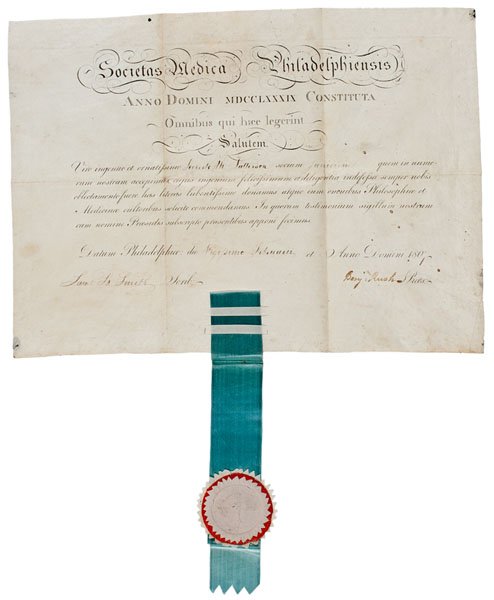 Societas Medica Philadelphiensis
ANNO DOMINI MDCCLXXXIX CONSTITUTA
Omnibus qui hæc legerint
Salutem
Viro ingenuo et ornatissimo socium quem in nume
rum nostrum accepimus cujus ingenium diligentia semper nobis
has literas donamus atque eum omnibus Philosophiæ et
Medicinæ cultoribus commendamus. In quorum testimonium sigillum nostrum
cum nomine Præsidis subscripto præsentibus apponi fecimus.
Datum Philadelphiæ die Vigesimo Februarii Anno Domini 1807
Benj. Rush Præs.